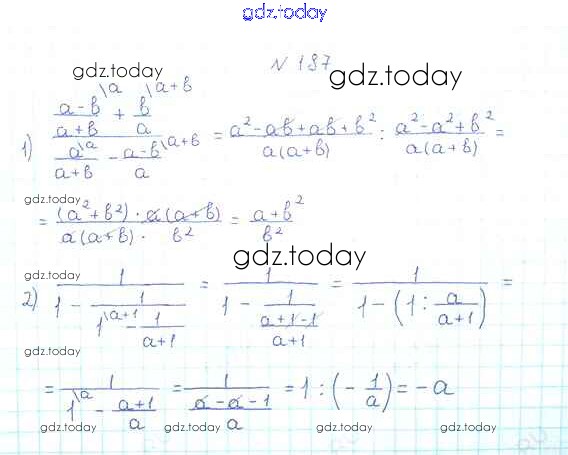 gdz.today
№ 187
gdz.today gdz.today
1) \frac{\frac{a-b}{a+b}^{\a} + \frac{b}{a}^{\a+b}}{\frac{a}{a+b}^{\a} - \frac{a-b}{a}^{\a+b}} = \frac{a^2-ab+ab+b^2}{a(a+b)} : \frac{a^2-a^2+b^2}{a(a+b)} =
gdz.today
= \frac{(a^2+b^2) · a(a+b)}{a(a+b) · b^2} = \frac{a+b^2}{b^2}
gdz.today
gdz.today
2) \frac{1}{1 - \frac{1}{1^{\a+1} - \frac{1}{a+1}}} = \frac{1}{1 - \frac{1}{\frac{a+1-1}{a+1}}} = \frac{1}{1-(1 : \frac{a}{a+1})} =
gdz.today
= \frac{1}{1^{\a} - \frac{a+1}{a}} = \frac{1}{\frac{a-a-1}{a}} = 1 : (-\frac{1}{a}) = -a
gdz.today gdz.today gdz.today gdz.today